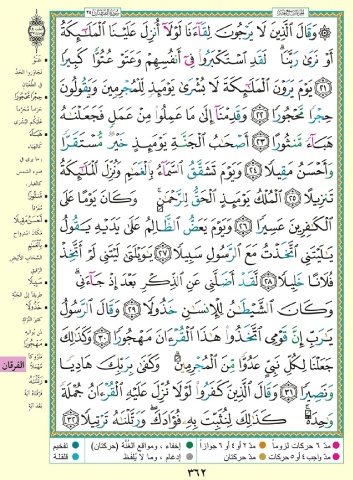 ۞ وَقَالَ ٱلَّذِينَ لَا يَرۡجُونَ لِقَآءَنَا لَوۡلَآ أُنزِلَ عَلَيۡنَا ٱلۡمَلَٰٓئِكَةُ
أَوۡ نَرَىٰ رَبَّنَاۗ لَقَدِ ٱسۡتَكۡبَرُواْ فِيٓ أَنفُسِهِمۡ وَعَتَوۡ عُتُوّٗا كَبِيرٗا
٢١ يَوۡمَ يَرَوۡنَ ٱلۡمَلَٰٓئِكَةَ لَا بُشۡرَىٰ يَوۡمَئِذٖ لِّلۡمُجۡرِمِينَ وَيَقُولُونَ
حِجۡرٗا مَّحۡجُورٗا ٢٢ وَقَدِمۡنَآ إِلَىٰ مَا عَمِلُواْ مِنۡ عَمَلٖ فَجَعَلۡنَٰهُ
هَبَآءٗ مَّنثُورًا ٢٣ أَصۡحَٰبُ ٱلۡجَنَّةِ يَوۡمَئِذٍ خَيۡرٞ مُّسۡتَقَرّٗا
وَأَحۡسَنُ مَقِيلٗا ٢٤ وَيَوۡمَ تَشَقَّقُ ٱلسَّمَآءُ بِٱلۡغَمَٰمِ وَنُزِّلَ ٱلۡمَلَٰٓئِكَةُ
تَنزِيلًا ٢٥ ٱلۡمُلۡكُ يَوۡمَئِذٍ ٱلۡحَقُّ لِلرَّحۡمَٰنِۚ وَكَانَ يَوۡمًا عَلَى
ٱلۡكَٰفِرِينَ عَسِيرٗا ٢٦ وَيَوۡمَ يَعَضُّ ٱلظَّالِمُ عَلَىٰ يَدَيۡهِ يَقُولُ
يَٰلَيۡتَنِي ٱتَّخَذۡتُ مَعَ ٱلرَّسُولِ سَبِيلٗا ٢٧ يَٰوَيۡلَتَىٰ لَيۡتَنِي لَمۡ أَتَّخِذۡ
فُلَانًا خَلِيلٗا ٢٨ لَّقَدۡ أَضَلَّنِي عَنِ ٱلذِّكۡرِ بَعۡدَ إِذۡ جَآءَنِيۗ
وَكَانَ ٱلشَّيۡطَٰنُ لِلۡإِنسَٰنِ خَذُولٗا ٢٩ وَقَالَ ٱلرَّسُولُ
يَٰرَبِّ إِنَّ قَوۡمِي ٱتَّخَذُواْ هَٰذَا ٱلۡقُرۡءَانَ مَهۡجُورٗا ٣٠ وَكَذَٰلِكَ
جَعَلۡنَا لِكُلِّ نَبِيٍّ عَدُوّٗا مِّنَ ٱلۡمُجۡرِمِينَۗ وَكَفَىٰ بِرَبِّكَ هَادِيٗا
وَنَصِيرٗا ٣١ وَقَالَ ٱلَّذِينَ كَفَرُواْ لَوۡلَا نُزِّلَ عَلَيۡهِ ٱلۡقُرۡءَانُ جُمۡلَةٗ
وَٰحِدَةٗۚ كَذَٰلِكَ لِنُثَبِّتَ بِهِۦ فُؤَادَكَۖ وَرَتَّلۡنَٰهُ تَرۡتِيلٗا ٣٢
عَتَوۡ
حِجۡرٗا مَّحۡجُورٗا
هَبَآءٗ
مَّنثُورًا
وَأَحۡسَنُ مَقِيلٗا
بِٱلۡغَمَٰمِ
سَبِيلٗا
خَذُولٗا
مَهۡجُورٗا
الفرقان
وَرَتَّلۡنَٰهُ
مدّ ٦ حركات لزوماً
مدّ ٢ أو ٤ أو ٦ جوازاً
إخفاء، ومواقع الغُنَّة (حركتان)
تفخيم
مدّ واجب ٤ أو ٥ حركات
مدّ حركتان
إدغام، وما لا يُلفَظ
قلقلة
٣٦٢